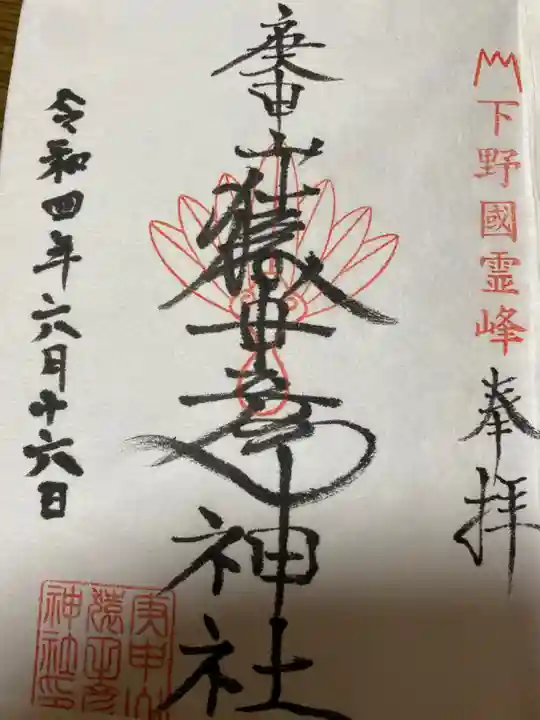 下野國霊峰
奉拝
庚申山
猿田彦神社
令和四年六月十六日
庚申山
猿田彦
神社印